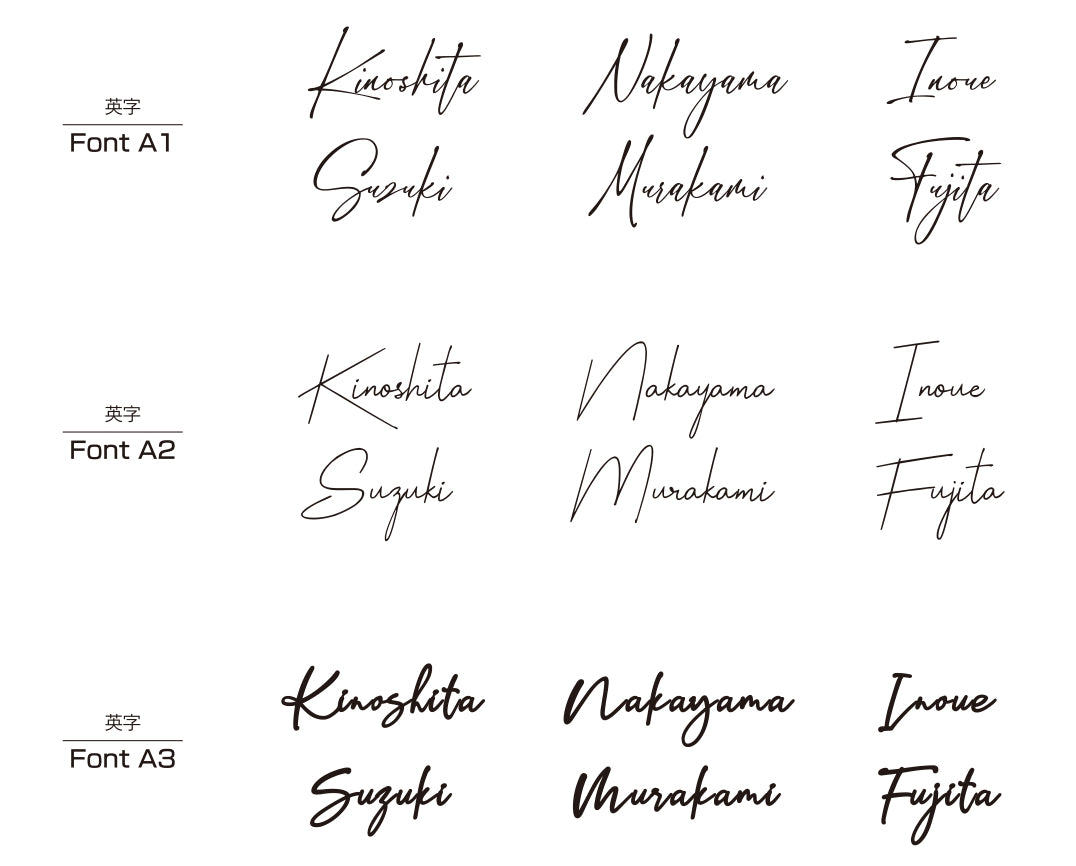 英字
Font A1
Kinoshita Nakayama Inoue
Suzuki Murakami Fujita
英字
Font A2
Kinoshita Nakayama Inoue
Suzuki Murakami Fujita
英字
Font A3
Kinoshita Nakayama Inoue
Suzuki Murakami Fujita